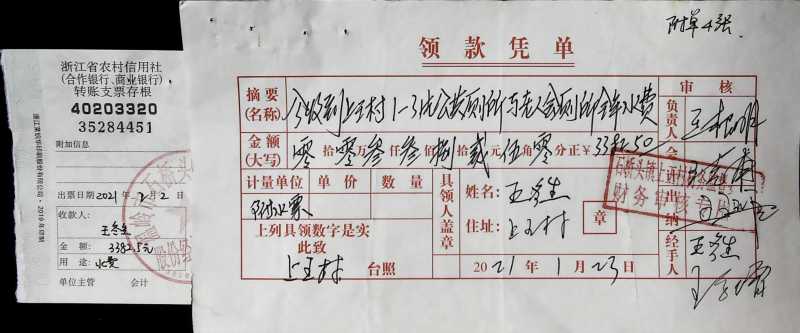 浙江省农村信用社
(合作银行、商业银行)
转账支票存根
40203320
35284451
附加信息
出票日期2021年2月2日
收款人:
王冬生
金额:3382.5元
用途:水费
单位主管 会计
附单4张
领款凭单
摘要
(名称)
今收到上王村1-3化公共厕所与老人会厕所全年水费
金额
(大写)
零拾零万叁仟叁佰捌拾贰元伍角零分正¥3382.50
计量单位 单价 数量
附收票
上列具领数字是实
此致
上王村 台照
具领人盖章
姓名:王冬生
住址:上王村
章
2021年1月23日
审核
负责人
会计
出纳
经手人
王冬生
财务审核专用章